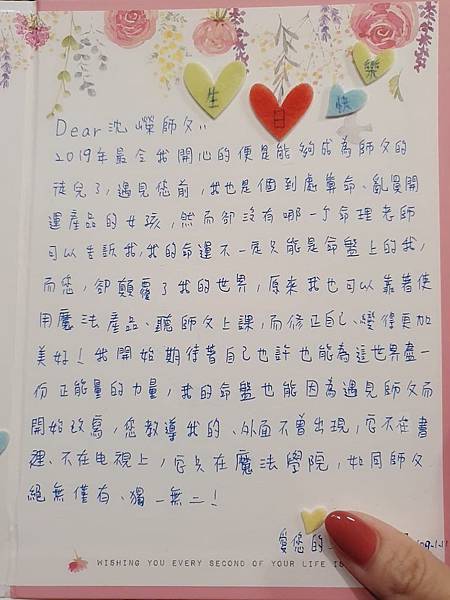 生日快樂
Dear 沈嶸師父:
2019年最令我開心的便是能夠成為師父的
徒兒了,遇見您前,我也是個到處算命、亂買開
運產品的女孩,然而卻沒有哪一个命理老師
可以告訴我,我的命運不一定只能是命盤上的我,
而您,卻顛覆了我的世界,原來我也可以靠著使
用魔法產品、聽師父上課,而修正自己、變得更加
美好!我開始期待著自己也許也能為這世界盡一
份正能量的力量,我的命盤也能因為遇見師父而
開始改寫,您教導我的、外面不曾出現,它不在書
裡、不在电視上,它只在魔法學院,如同師父
絕無僅有、獨一無二!
愛您的
WISHING YOU EVERY SECOND OF YOUR LIFE IS